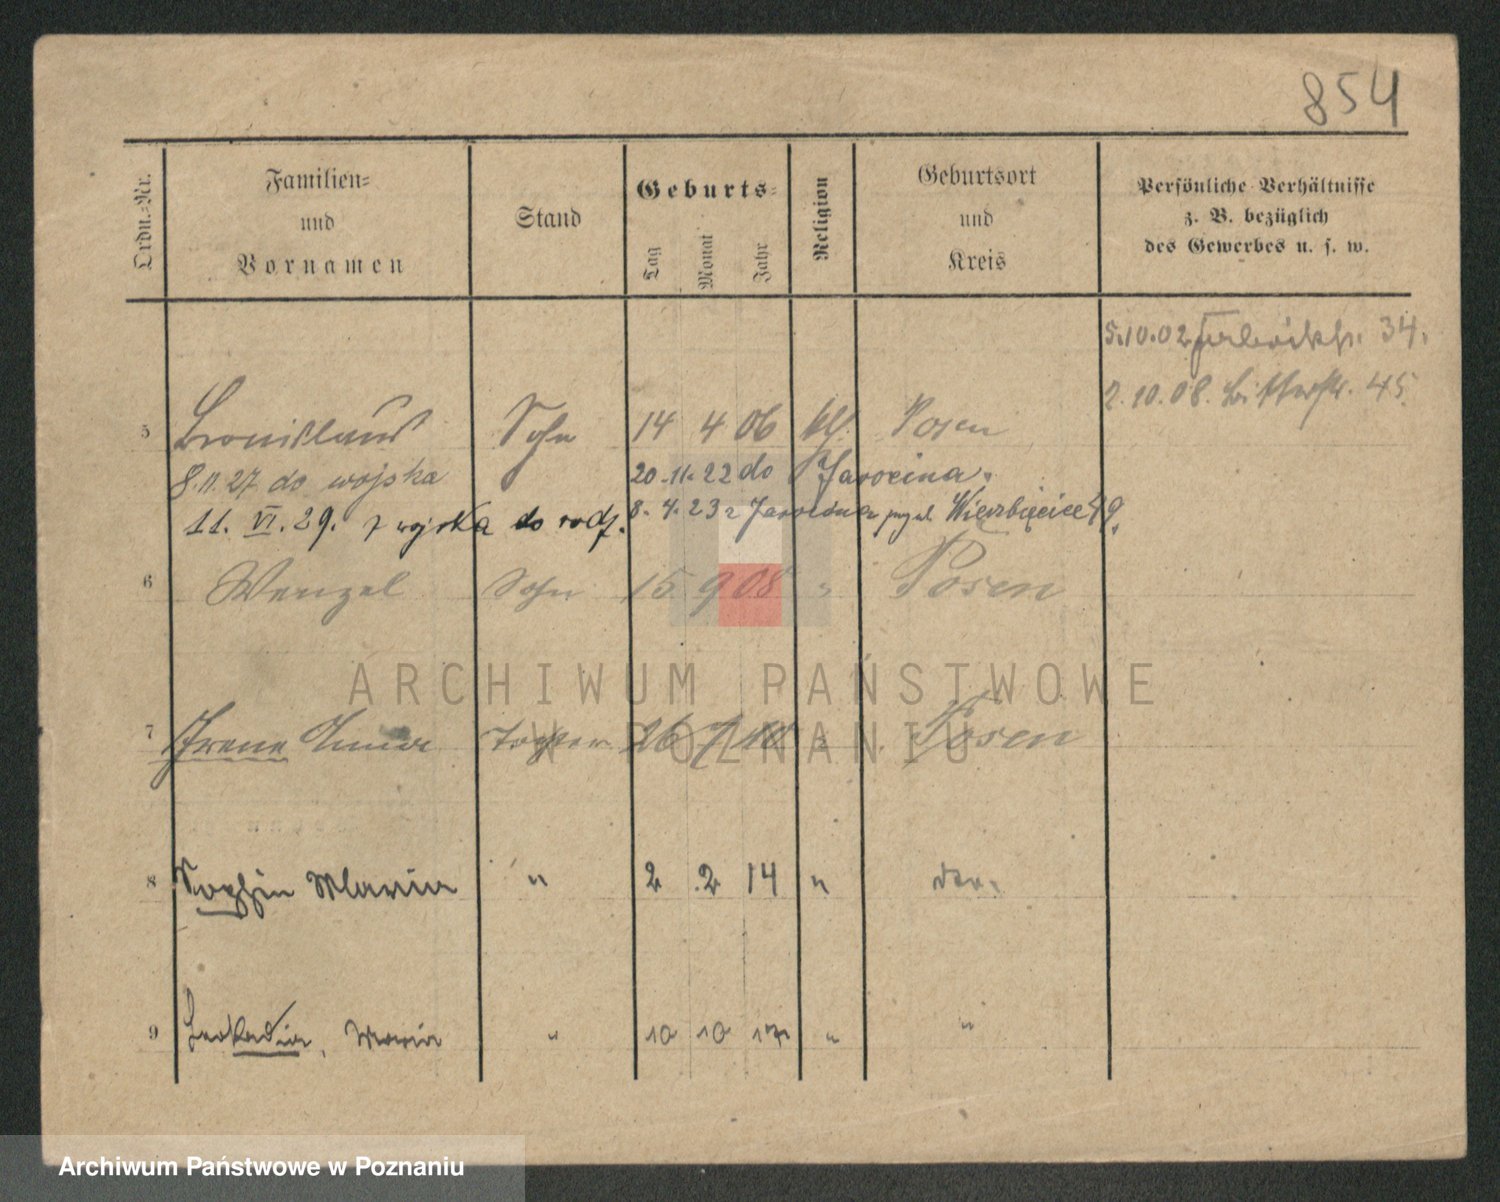 854
Ordn.-Nr.
Familien-
und
Vornamen
Stand
Geburts-
Tag
Monat
Jahr
Religion
Geburtsort
und
Kreis
Persönliche Verhältnisse
z. B. bezüglich
des Gewerbes u. s. w.
5.10.02 34.
2.10.08. Bitterstr. 45
5 Bronislaus Sohn 14 4 06 kth. Posen
8.11.27 do wojska 20.11.22 do Jarocina.
11. VI. 29. z wojska do rodz. 8.4.23 z Jarocina Wierzbięcice 49.
6 Wenzel Sohn 15 9 08 " Posen
7 Irene Anna Tochter 26 7 10 " Posen
8 Sophia Maria " 2 2 14 "
9 Leokadia, Maria " 10 10 17 " "
ARCHIWUM PAŃSTWOWE
W POZNANIU
Archiwum Państwowe w Poznaniu